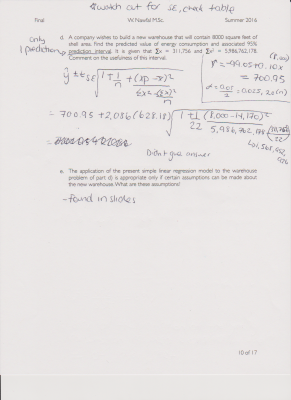 watch out for SE, check table
Final W. Nawfal M.Sc. Summer 2016
only
1 prediction
d. A company wishes to build a new warehouse that will contain 8000 square feet of
shelf area. Find the predicted value of energy consumption and associated 95%
prediction interval. It is given that Σx = 311,756 and Σx² = 5,986,762,178
Comment on the usefulness of this interval.
(8,000)
ŷ = -99.05 + 0.10x
= 700.95
= 0.025, 20
= 700.95 ± 2.086 (628.18)
(8,000 - 14,170)²
22 5,986,762,178
Didn't give answer
e. The application of the present simple linear regression model to the warehouse
problem of part d) is appropriate only if certain assumptions can be made about
the new warehouse. What are these assumptions?
- found in slides
10 of 17